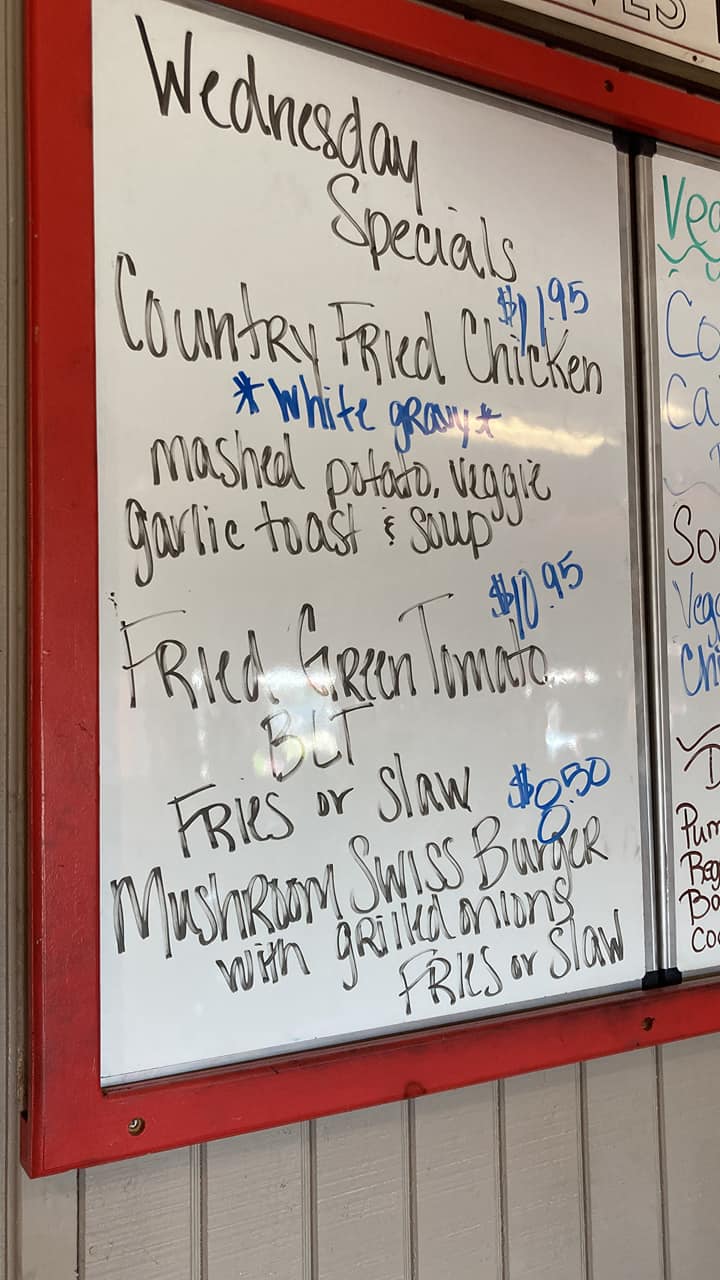 Wednesday
Specials
$11.95
Country Fried Chicken
*White gravy*
mashed potato, veggie
garlic toast & soup
$10.95
Fried Green Tomato
BLT
Fries or slaw
$8.50
Mushroom Swiss Burger
with grilled onions
Fries or slaw
Veg
Co
Ca
So
Veg
Chi
D
Pum
Beg
Ba
Co